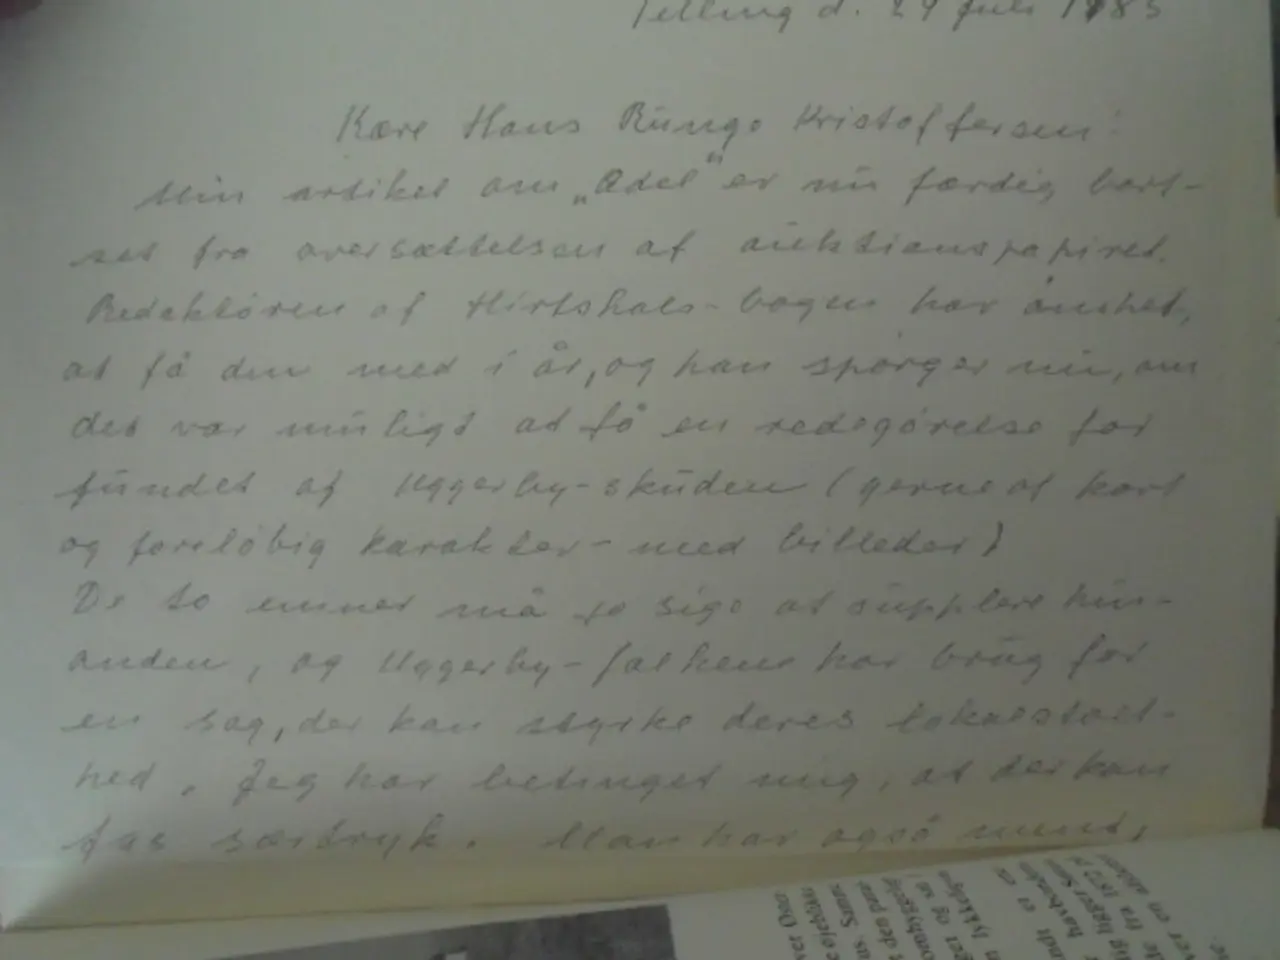 Telling d. 29 juli 1983
Kære Hans Rungo Kristoffersen:
Min artikel om „Adel" er nu færdig bort-
set fra oversættelsen af auktionspapiret.
Redaktøren af Hirtshals-bogen har ønsket,
at få den med i år, og han spørger nu, om
det var muligt at få en redegørelse for
fundet af Uggerby-skuden (gerne af kort
og foreløbig karakter - med billeder)
De to emner må jo sige at supplere hin-
anden, og Uggerby-folkene har brug for
en sag, der kan styrke deres lokalstolt-
hed. Jeg har betinget mig, at der kan
fås særtryk. Man har også ment,